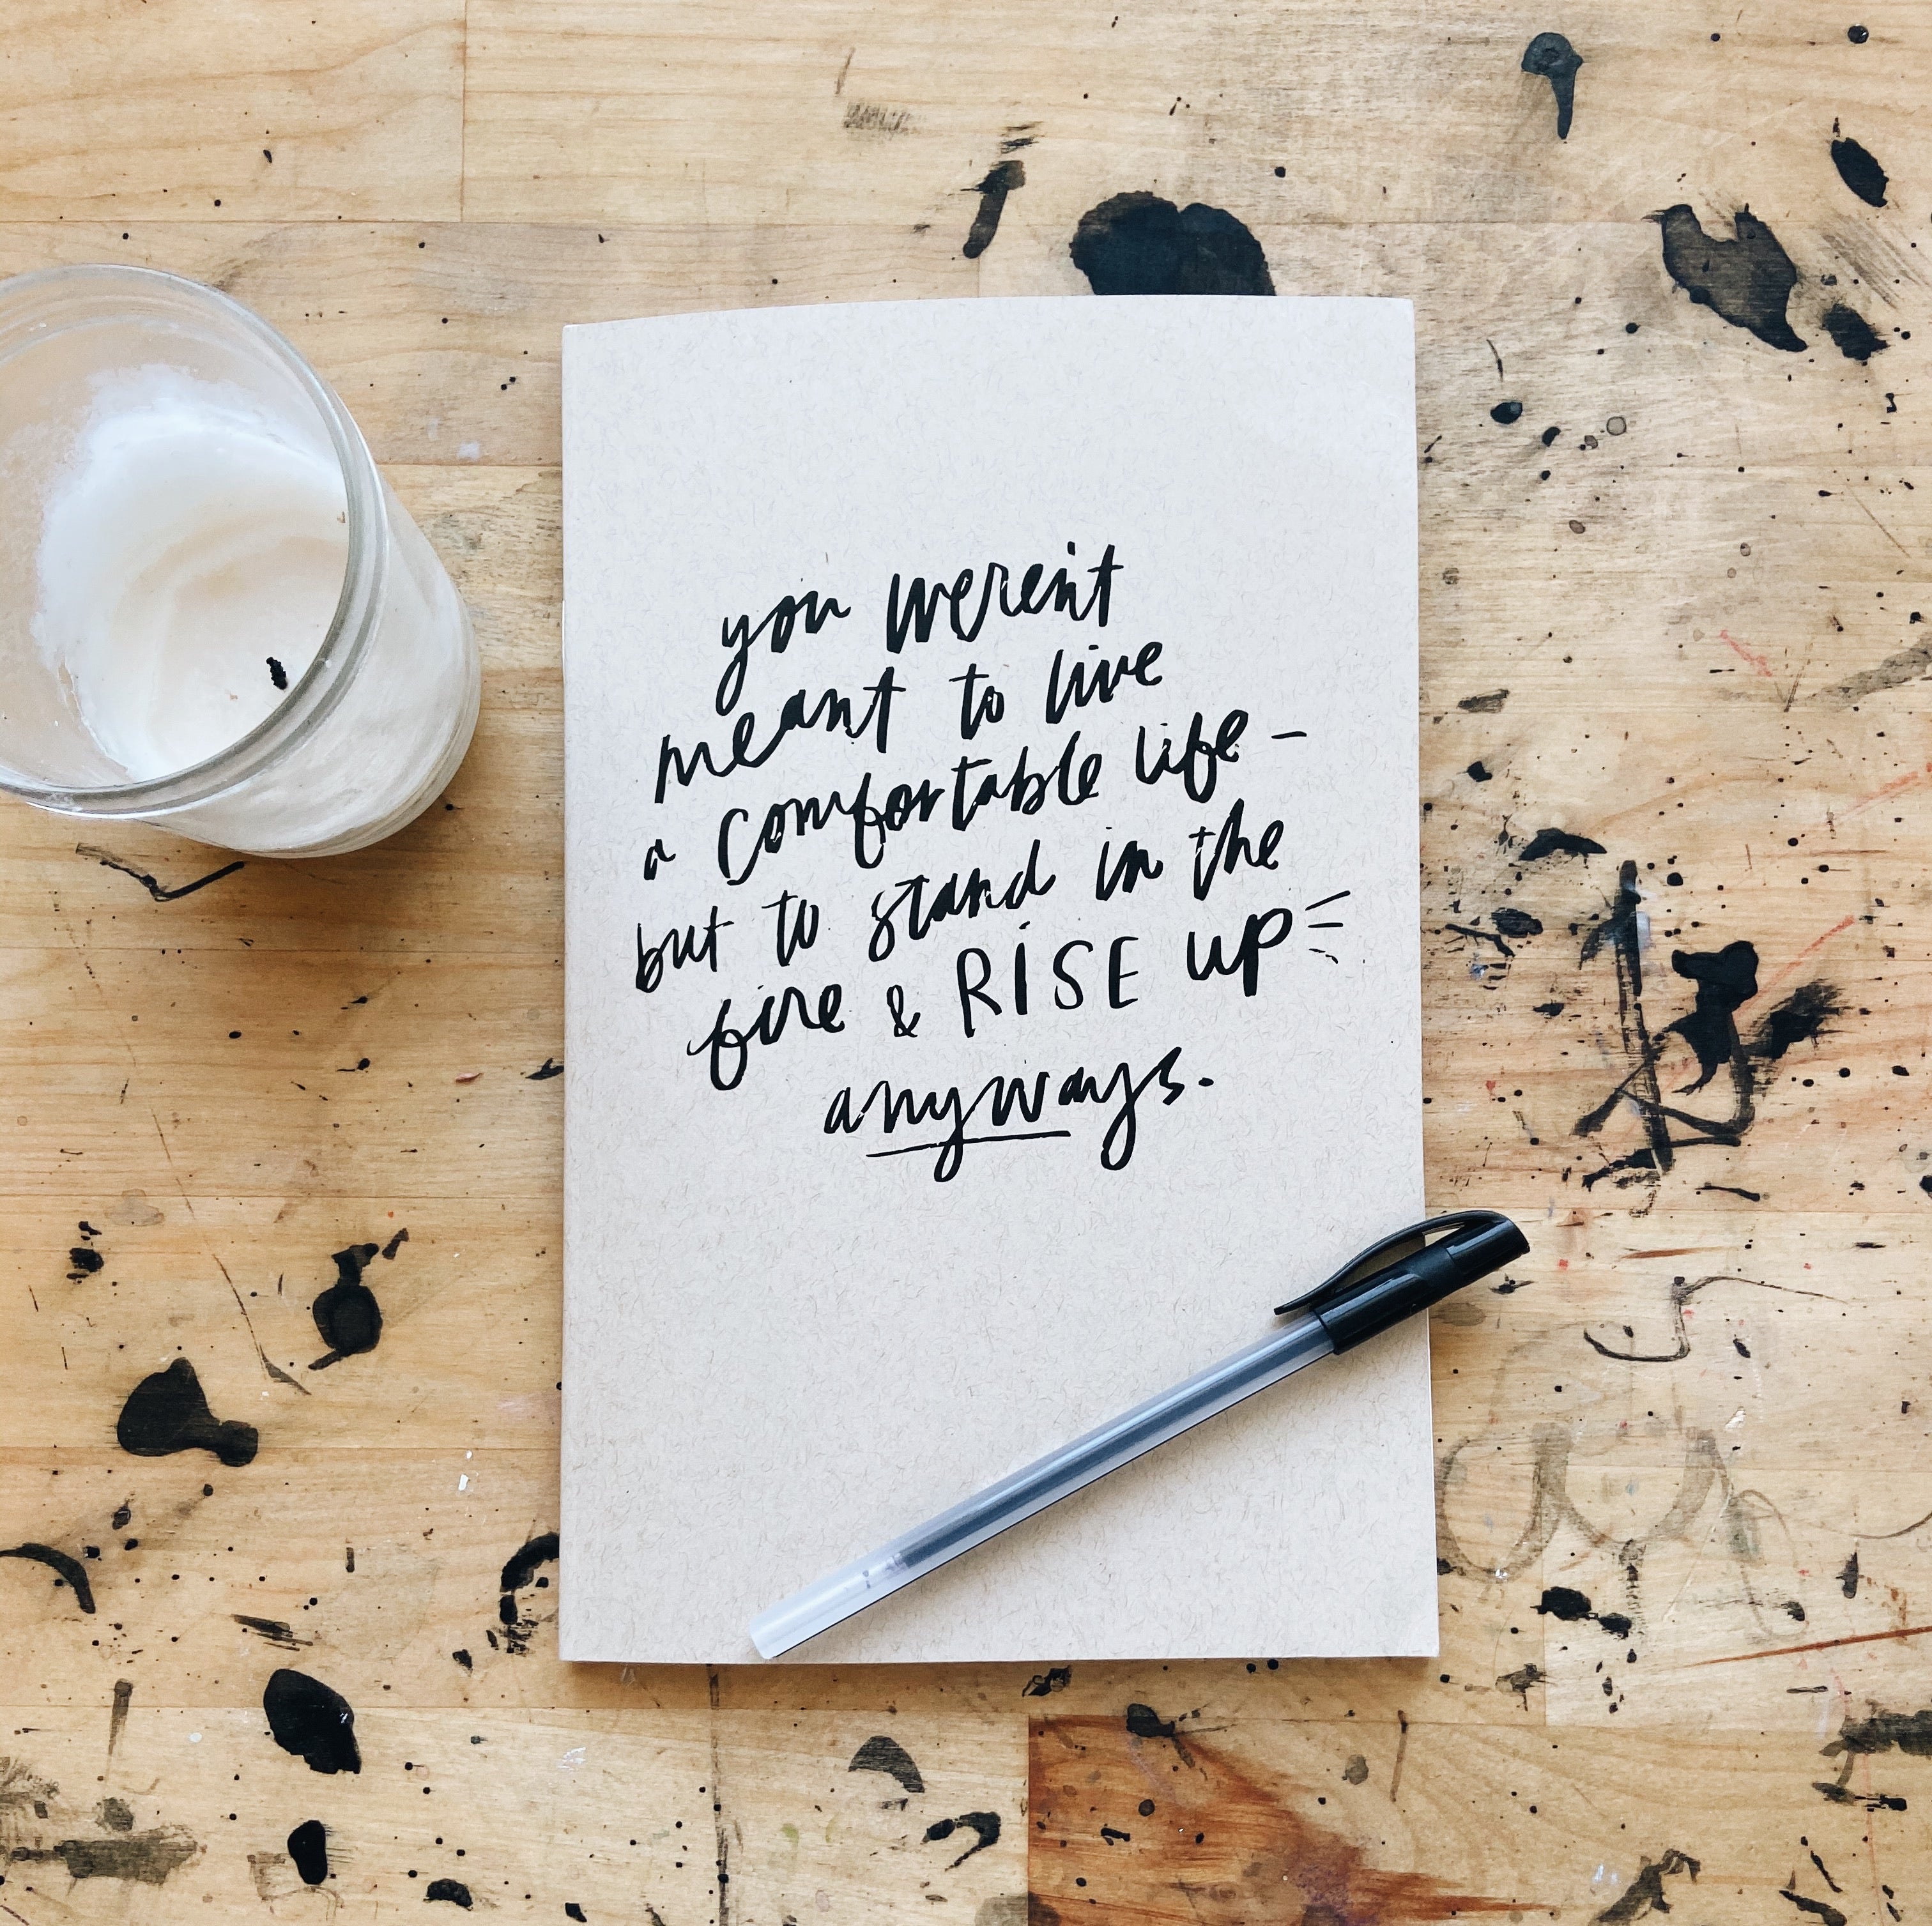 you weren't
meant to live
a comfortable life -
but to stand in the
fire & RISE up
anyways.